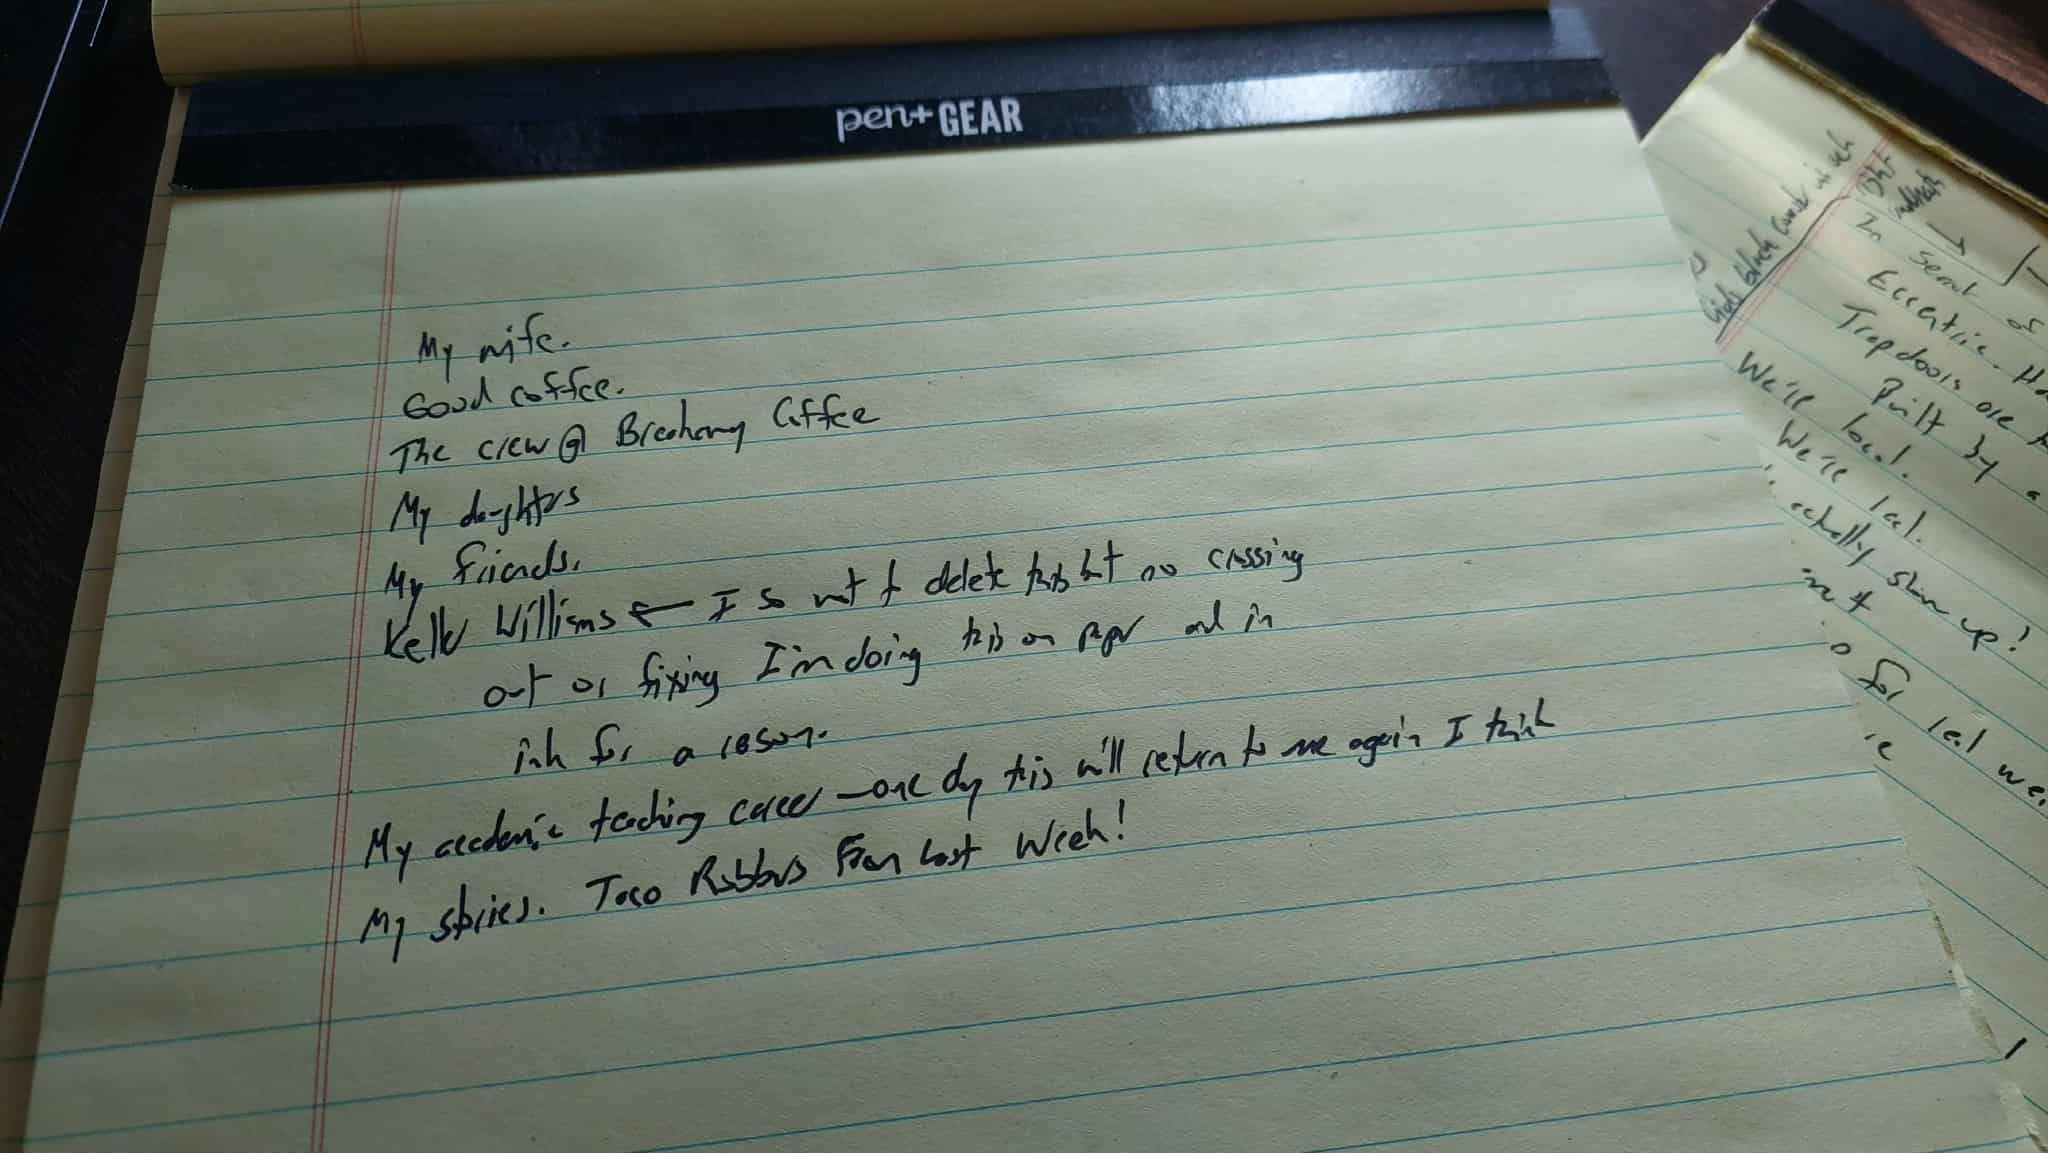 pen+GEAR
My wife.
Good coffee.
The crew @ Coffee
My daughters
My friends.
Keller Williams ← I so want to delete this but no crossing
out or fixing I'm doing this on paper and in
ink for a reason.
My academic teaching career — one day this will return to me again I think
My stories. Taco Robbers From Last Week!
right
In
Serert of
Eccentric.
Trapdoors are
Built by a
We're local.
We're
actually show up!
for